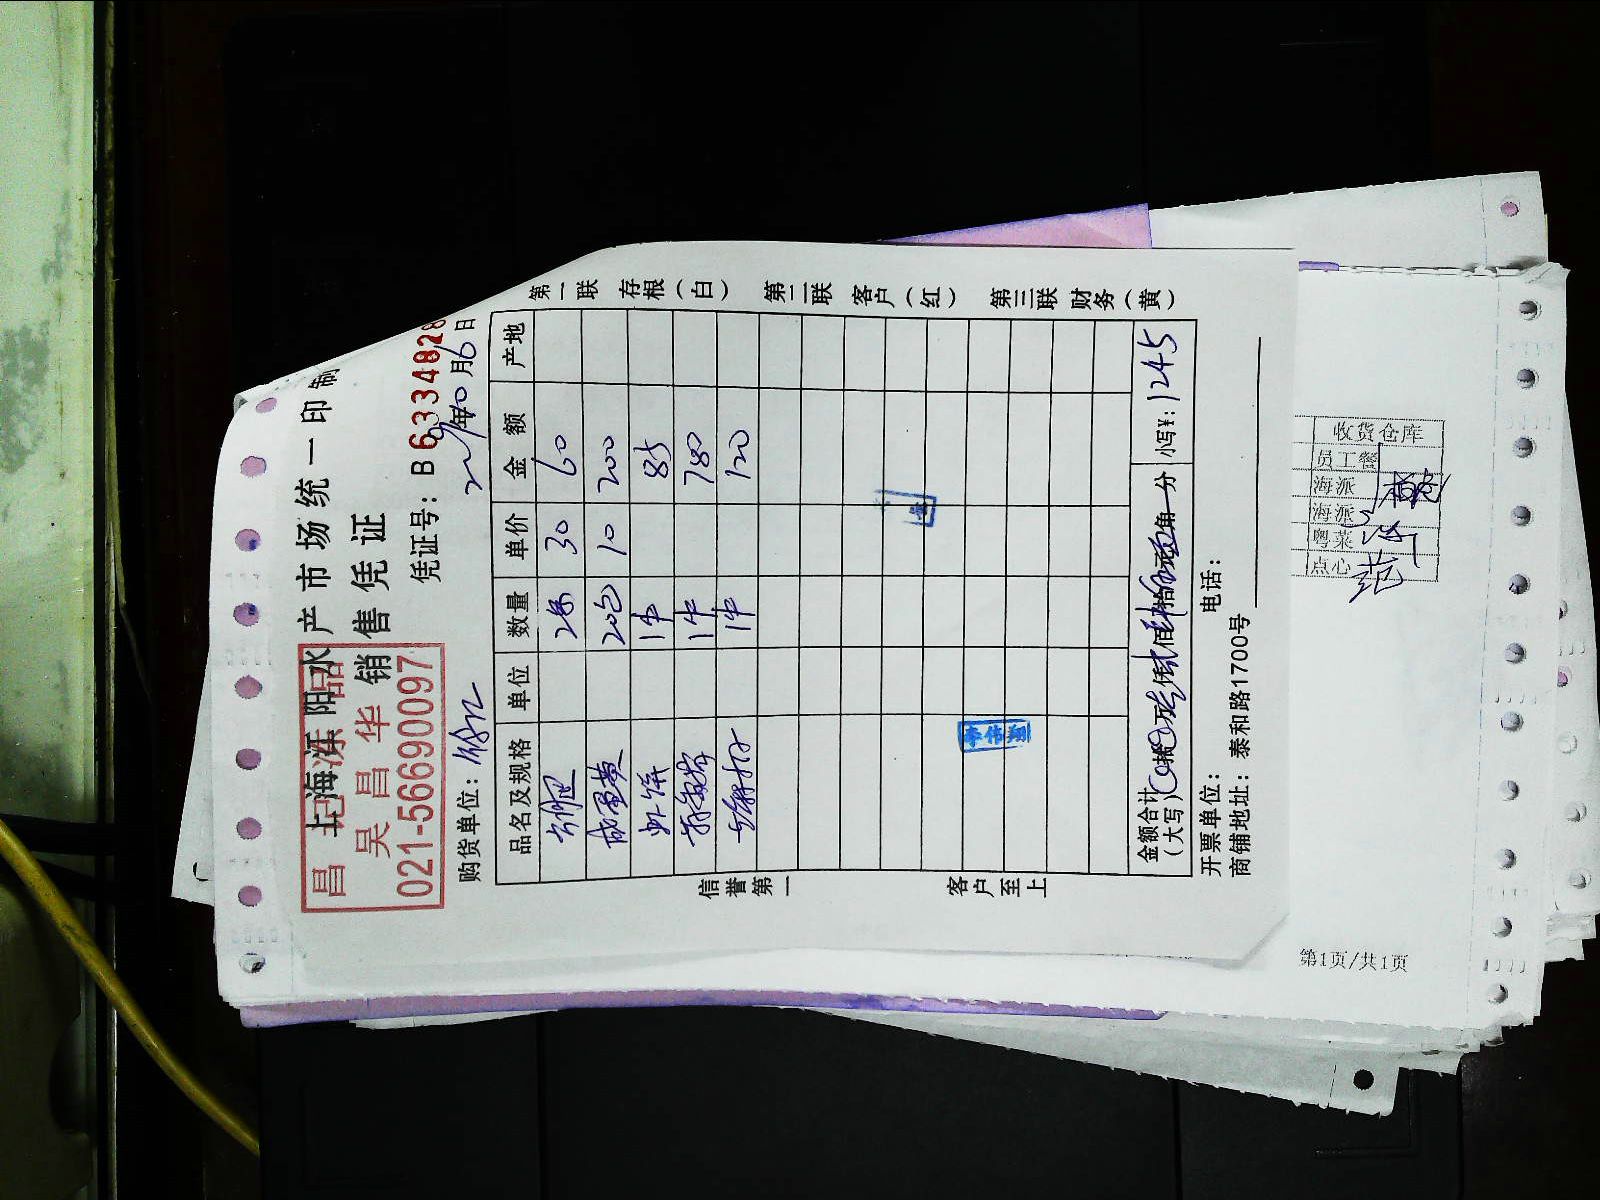 上海江阳水产市场统一印制
销售凭证
昌
吴昌华
021-56690097
凭证号：B 6334828
年10月6日
购货单位：
品名及规格 单位 数量 单价 金额 产地
30 60
咸蛋黄 20包 10 200
虾饼 1件 85
1件 780
1件 120
金额合计（大写） 拾 万 仟 佰 拾 元 角 分 小写¥：1245
开票单位： 电话：
商铺地址：泰和路1700号
第一联 存根（白） 第二联 客户（红） 第三联 财务（黄）
信誉第一 客户至上
收货仓库
员工餐
海派
海派
粤菜
点心
第1页/共1页